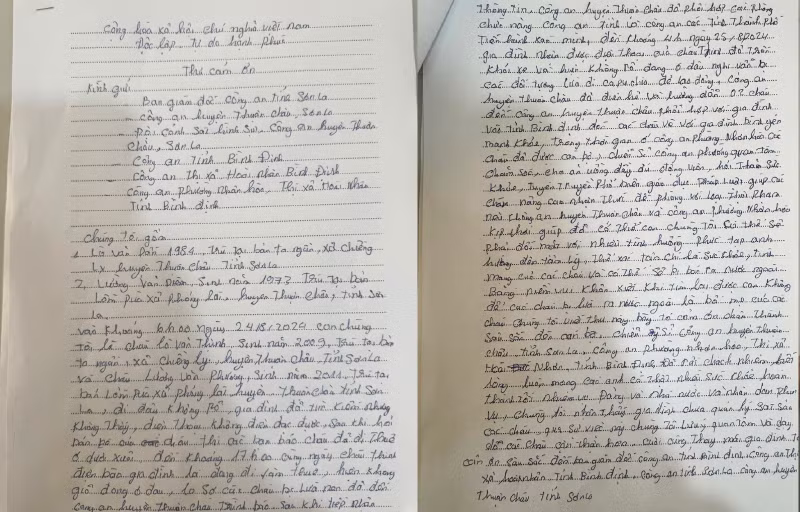 Cộng hòa xã hội chủ nghĩa việt nam
Độc lập, Tự do hạnh phúc
Thư cảm ơn
Kính gửi
Ban giám đốc công an tỉnh Sơn La
- công an huyện Thuận Châu, Sơn La
- Đội cảnh sát hình sự, công an huyện Thuận
Châu, Sơn La
- Công an Tỉnh Bình Định
- công an thị xã Hoài Nhơn Bình Định
công an phường Nhơn hòa, Thị xã
Tỉnh Bình định
chúng tôi gồm
1. Lò văn 1984, Trú tại bản ta ngần, xã chiềng
Ly huyện Thuận Châu Tỉnh Sơn La
2. Lường văn Diêm, Sinh năm 1973 Trú tại bản
xã phỏng lái, huyện Thuận Châu, tỉnh Sơn
La
vào khoảng 6h00 ngày 24/8/2024 con chúng
tôi là cháu là văn Thinh Sinh năm 2009, Trú tại bản
ta ngần, xã chiềng ly, huyện Thuận Châu, Tỉnh Sơn La
và cháu Lường văn phương, Sinh năm Trú tại
xã phỏng lái huyện Thuận Châu tỉnh Sơn
La, đi đâu không rõ, gia đình đã tìm kiếm nhưng
không thấy, điện thoại không điện được, Sau khi hỏi
bạn bè của cháu thì các bạn bảo cháu đã đi Thuê
ở dưới xuôi đến khoảng 17h00 cùng ngày cháu Thinh
điện báo gia đình là đang đi làm thuê, hiện không
đang ở đâu, lo sợ các cháu bị lừa nên đã đến
công an huyện Thuận Châu Trình báo Sau khi tiếp nhận
Thông tin, công an huyện Thuận Châu đã phối hợp
chức năng công an Tỉnh và công an các Tỉnh Thành phố
đến khoảng 4h ngày 25/8/2024
gia đình nhận được điện thoại của cháu Thinh đã
xe và hiện không rõ đang ở đâu nghi vấn bị
các đối tượng lừa đi campuchia để lao động, công an
huyện Thuận Châu đã điện và hướng dẫn 02 cháu
đến công an huyện Thuận Châu phối hợp với gia đình
vào Tỉnh Bình định đón các cháu về với gia đình bình yên
mạnh khỏe, Trong thời gian ở công an phường Nhơn hòa các
cháu đã được cán bộ, chiến sĩ công an phường quan tâm
chăm sóc, cho ăn uống đầy đủ động viên, hỏi thăm sức
khỏe, Tuyên Truyền phổ biến giáo dục pháp luật giúp các
cháu nâng cao nhận thức để phòng với loại Tội phạm
này công an huyện Thuận Châu và công an phường Nhơn hòa
kịp thời giúp đỡ có thể con chúng tôi
phải đối mặt với nhiều tình huống phức tạp ảnh
hưởng đến tâm lý, Thể xác tài chí là sức khỏe, tính
mạng của các cháu và có thể sẽ bị bán ra nước ngoài
khi tìm lại được con không
để các cháu bị lừa ra nước ngoài là bố mẹ của các
cháu chúng tôi viết thư này bày tỏ cảm ơn chân Thành
sâu sắc đến cán bộ, chiến sỹ công an huyện Thuận
châu Tỉnh Sơn La, công an phường Nhơn hòa, Thị xã
Nhơn, Tỉnh Bình Định đã có trách nhiệm,
luôn mong các anh có Thật nhiều Sức khỏe hoàn
thành tốt nhiệm vụ Đảng và nhà nước và nhân dân phục
vụ, chúng tôi nhận thấy gia đình chưa quan lý Sát Sao
các cháu, qua sự việc này chúng tôi lưu ý quan tâm và dạy
dỗ các cháu cẩn thận hơn. cuối cùng Thay mặt gia đình
cảm ơn Sâu sắc đến ban giám đốc công an tỉnh Bình định, công an Thị
xã hoài Nhơn, Tỉnh Bình định, công an tỉnh Sơn La công an huyện
Thuận châu Tỉnh Sơn La